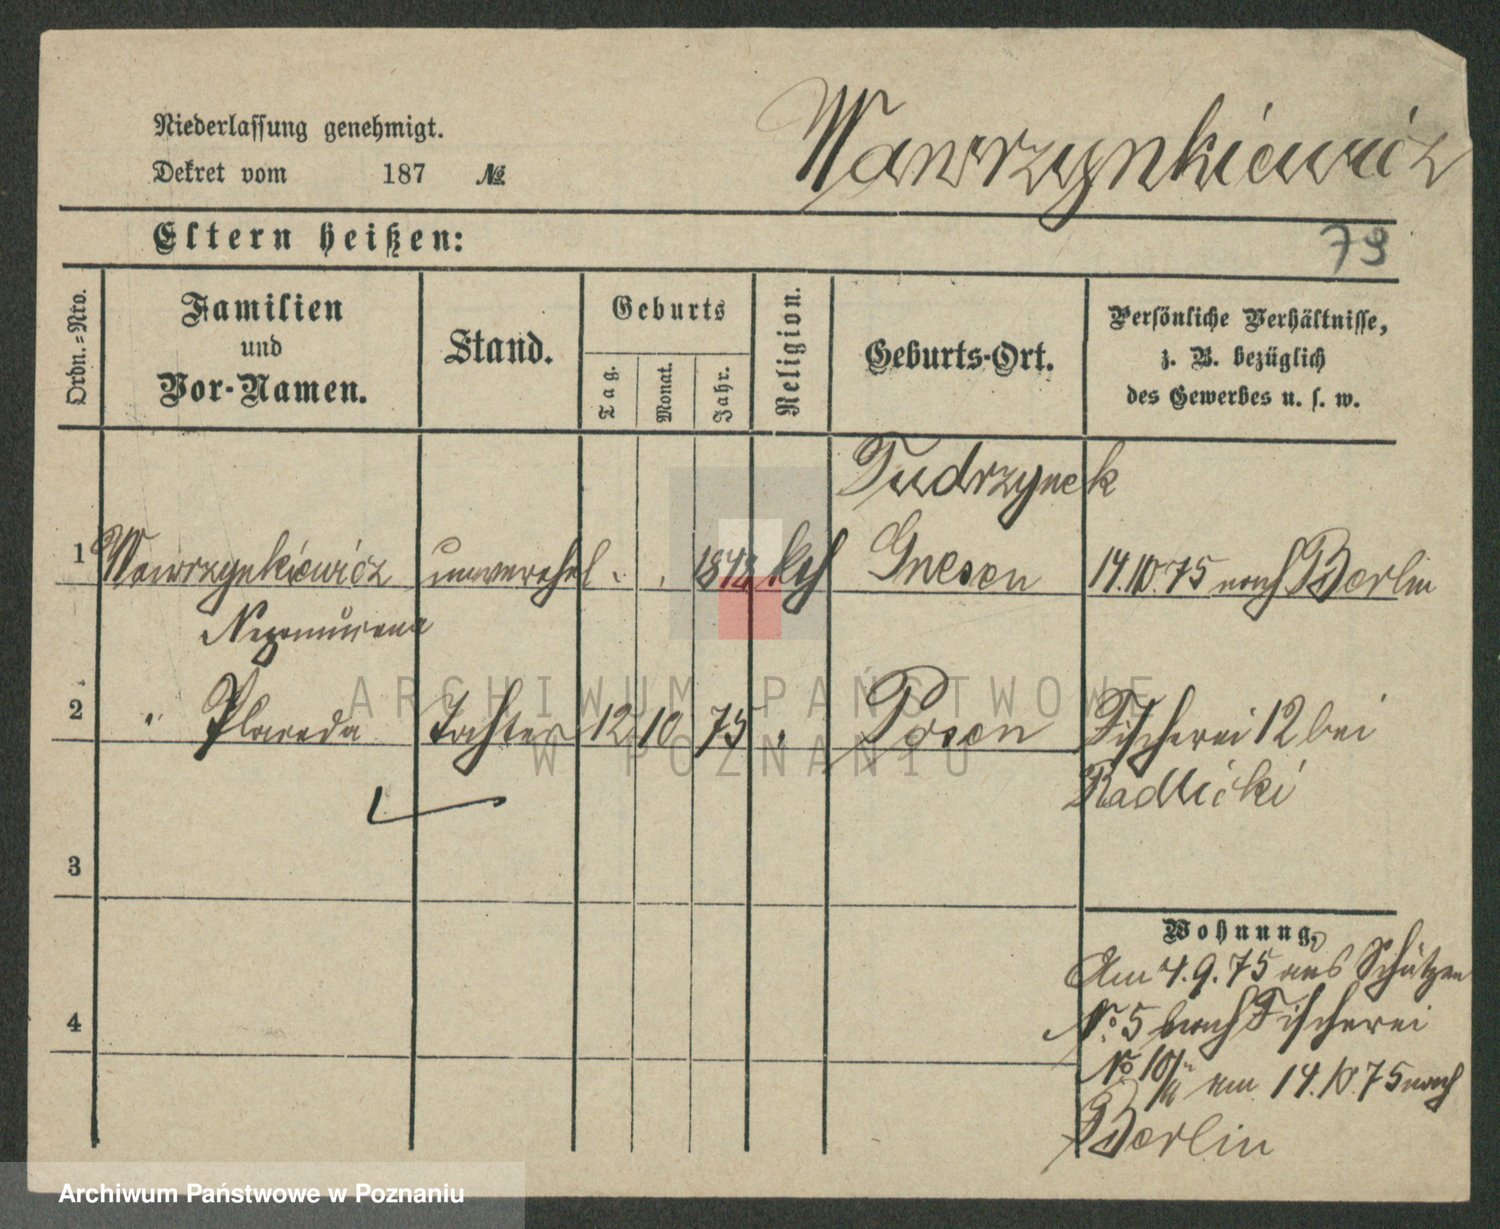 Niederlassung genehmigt.
Dekret vom 187 №
Wawrzynkiewicz
Eltern heißen:
79
Ordn.=Nro.
Familien
und
Vor-Namen.
Stand.
Geburts
Tag.
Monat.
Jahr.
Religion.
Geburts-Ort.
Persönliche Verhältnisse,
z. B. bezüglich
des Gewerbes u. s. w.
1 Wawrzynkiewicz unverehel. kth Gnesen 14.10.75 nach Berlin
2 " Tochter 12 10 75 " Posen Fischerei 12 bei
Radlicki
3
4
Wohnung,
Am 4.9.75 aus Schützen
No. 5 nach Fischerei
No 10/11 am 14.10.75 nach
Berlin
ARCHIWUM PAŃSTWOWE
W POZNANIU
Archiwum Państwowe w Poznaniu